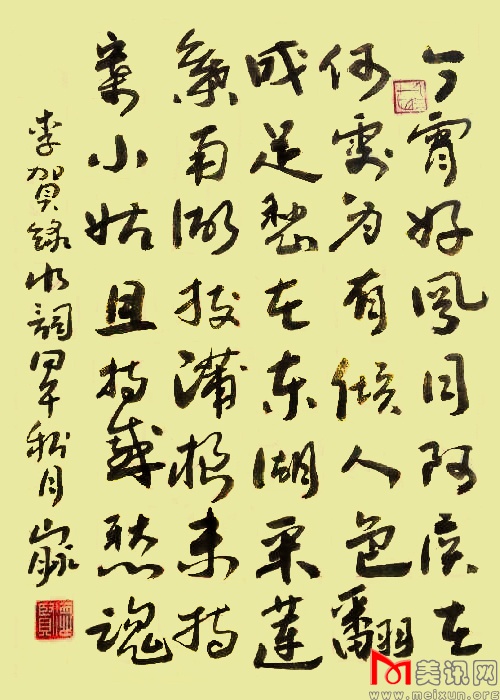 今宵好風月阿侯在
何處为有倾人色翻
成足愁苦东湖采莲
葉南湖拔蒲根未持
寄小姑且持感愁魂
李賀緑水詞
美讯网
www.meixun.org